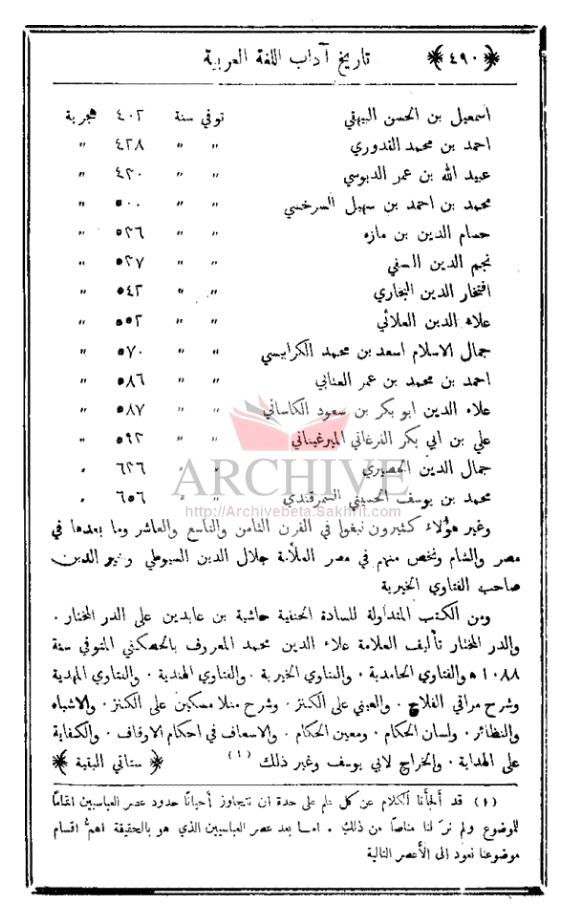 ﴿٤٩٠﴾ تاريخ آداب اللغة العربية
اسمعيل بن الحسن البيهقي توفي سنة ٤٠٢ هجرية
احمد بن محمد القدوري " " ٤٢٨ "
عبيد الله بن عمر الدبوسي " " ٤٣٠ "
محمد بن احمد بن سهيل السرخسي " " ٥٠٠ "
حسام الدين بن مازه " " ٥٣٦ "
نجم الدين السفي " " ٥٣٧ "
افتخار الدين البخاري " " ٥٤٢ "
علاء الدين العلائي " " ٥٥٢ "
جمال الاسلام اسعد بن محمد الكرابيسي " " ٥٧٠ "
احمد بن محمد بن عمر العتابي " " ٥٨٦ "
علاء الدين ابو بكر بن سعود الكاساني " " ٥٨٧ "
علي بن ابي بكر الفرغاني الميرغيناني " " ٥٩٢ "
جمال الدين الحصيري " " ٦٣٦ "
محمد بن يوسف الحسيني السمرقندي " " ٦٥٦ "
ARCHIVE
http://Archivebeta.Sakhrit.com
وغير هؤلاء كثيرون نبغوا في القرن الثامن والتاسع والعاشر وما بعدها في
مصر والشام ونخص منهم في مصر العلاَّمة جلال الدين السيوطي وخير الدين
صاحب الفتاوي الخيرية
ومن الكتب المتداولة للسادة الحنفية حاشية بن عابدين على الدر المختار .
والدر المختار تأليف العلامة علاء الدين محمد المعروف بالحصكني المتوفي سنة
١٠٨٨ ه والفتاوي الحامدية . والفتاوي الخيرية . والفتاوي الهندية . والفتاوي المهدية
وشرح مراقي الفلاح . والعيني على الكنز . وشرح منلا مسكين على الكنز . والاشباه
والنظائر . ولسان الحكام . ومعين الحكام . والاسعاف في احكام الاوقاف . والكفاية
على الهداية . والخراج لابي يوسف وغير ذلك (١) ﴿ ستاتي البقية ﴾
(١) قد ألجأنا الكلام عن كل علم على حدة ان نتجاوز أحياناً حدود عصر العباسيين اتماماً
للموضوع ولم نرَ لنا مناصاً من ذلك . اما بعد عصر العباسيين الذي هو بالحقيقة اهمُّ اقسام
موضوعنا نعود الى الأعصر التالية